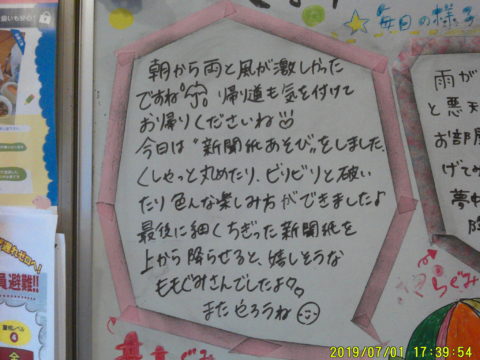 毎日の様子
朝から雨と風が激しかった
ですね 帰り道も気を付けて
お帰りくださいね
今日は"新聞紙あそび"をしました。
くしゃっと丸めたり、ビリビリと破い
たり色んな楽しみ方ができました♪
最後に細くちぎった新聞紙を
上から降らせると、嬉しそうな
ももぐみさんでしたよ♡。
またやろうね
雨が
と悪天
お部屋
げて
夢中
員避難!!
警戒レベル
4
2019/07/01 17:39:54